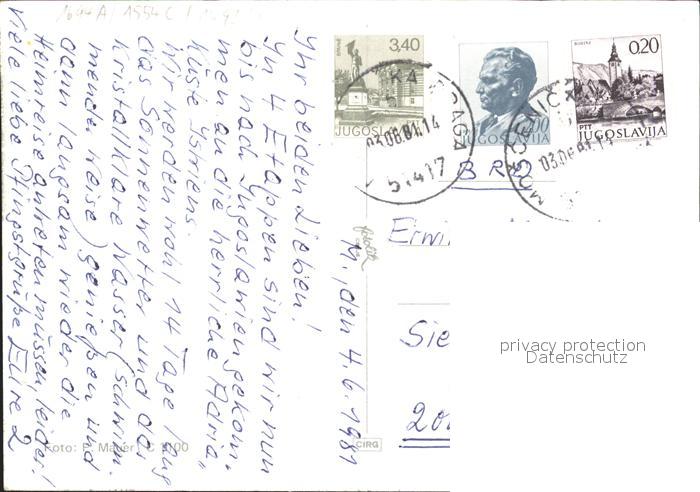 1644A/1554C/169
Yhr beiden Lieben!
Yn 4 Etappen sind wir nun
bis nach Jugoslawien gekom-
men an die herrliche Adria,
Küste Ystriens.
Wir werden wohl 14 Tage lang
das Sonnenwetter und das
Kristallklare Wasser (schwim-
mender Weise) genießen und
dann langsam wieder die
Heimreise antreten müssen, leider!
Viele liebe Pfingstgrüße Eure 2
M., den 4.6.1981
3,40
JUGOSLAVIJA
JUGOSLAVIJA
BOHINJ
0,20
PTT
JUGOSLAVIJA
DRAGA
03.06.81.14
51417
MOŠĆENIČKA
03.06.81.14
BRD
Erwi
Sie
Foto: F. Mauer
CIRG
privacy protection
Datenschutz